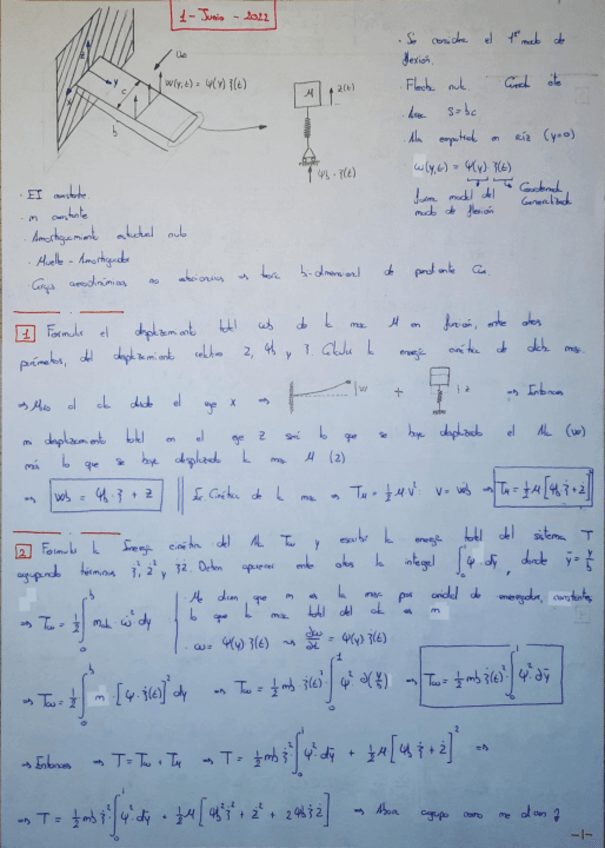 1 - Junio - 2022
U∞
w(y,t) = ψ(y) ξ(t)
z
y
x
c
b
M
z(t)
ψb · ξ(t)
· Se considera el 1er modo de
flexión.
· Flecha nula. Cuerda cte
· Área S = bc
· Ala empotrada en raíz (y=0)
· ω(y,t) = ψ(y) · ξ(t)
forma modal del modo de flexión
Coordenada Generalizada
· EI constante.
· m constante
· Amortiguamiento estructural nulo
· Muelle - Amortiguador
· Cargas aerodinámicas no estacionarias en teoría bi-dimensional de pendiente
1 Formular el desplazamiento total ωb de la masa M en función, entre otros
parámetros, del desplazamiento relativo z, ψb y ξ. Calcular la energía cinética de dicha masa.
⇒ Miro el ala desde el eje x ⇒ | w + | z ⇒ Entonces
mi desplazamiento total en el eje z será lo que se haya desplazado el Ala (w)
más lo que se haya desplazado la masa M (z)
⇒ ωb = ψb · ξ + z || En. Cinética de la masa ⇒ T_M = ½ M v² v = ω̇b ⇒ T_M = ½ M [ψb ξ̇ + ż]²
2 Formular la Energía cinética del Ala Tω y escribir la energía total del sistema T
agrupando términos ξ̇², ż² y ξ̇ż. Deben aparecer entre otros la integral ∫₀¹ ψ² dȳ, donde ȳ = y/b
⇒ Tω = ½ ∫₀ᵇ m_ala · ω̇² dy
Me dicen que m es la masa por unidad de envergadura, constante,
lo que la masa total del ala es m
· ω = ψ(y) ξ(t) ⇒ ∂ω/∂t = ψ(y) ξ̇(t)
⇒ Tω = ½ ∫₀ᵇ m · [ψ · ξ̇(t)]² dy ⇒ Tω = ½ mb · ξ̇(t)² · ∫₀¹ ψ² ∂(y/b) ⇒ Tω = ½ mb ξ̇(t)² · ∫₀¹ ψ² ∂ȳ
⇒ Entonces ⇒ T = Tω + T_M ⇒ T = ½ mb ξ̇² ∫₀¹ ψ² · dȳ + ½ M [ψb ξ̇ + ż]² ⇒
⇒ T = ½ mb ξ̇² ∫₀¹ ψ² dȳ + ½ M [ψb² ξ̇² + ż² + 2ψb ξ̇ ż] ⇒ Ahora agrupo como me dicen
-1-